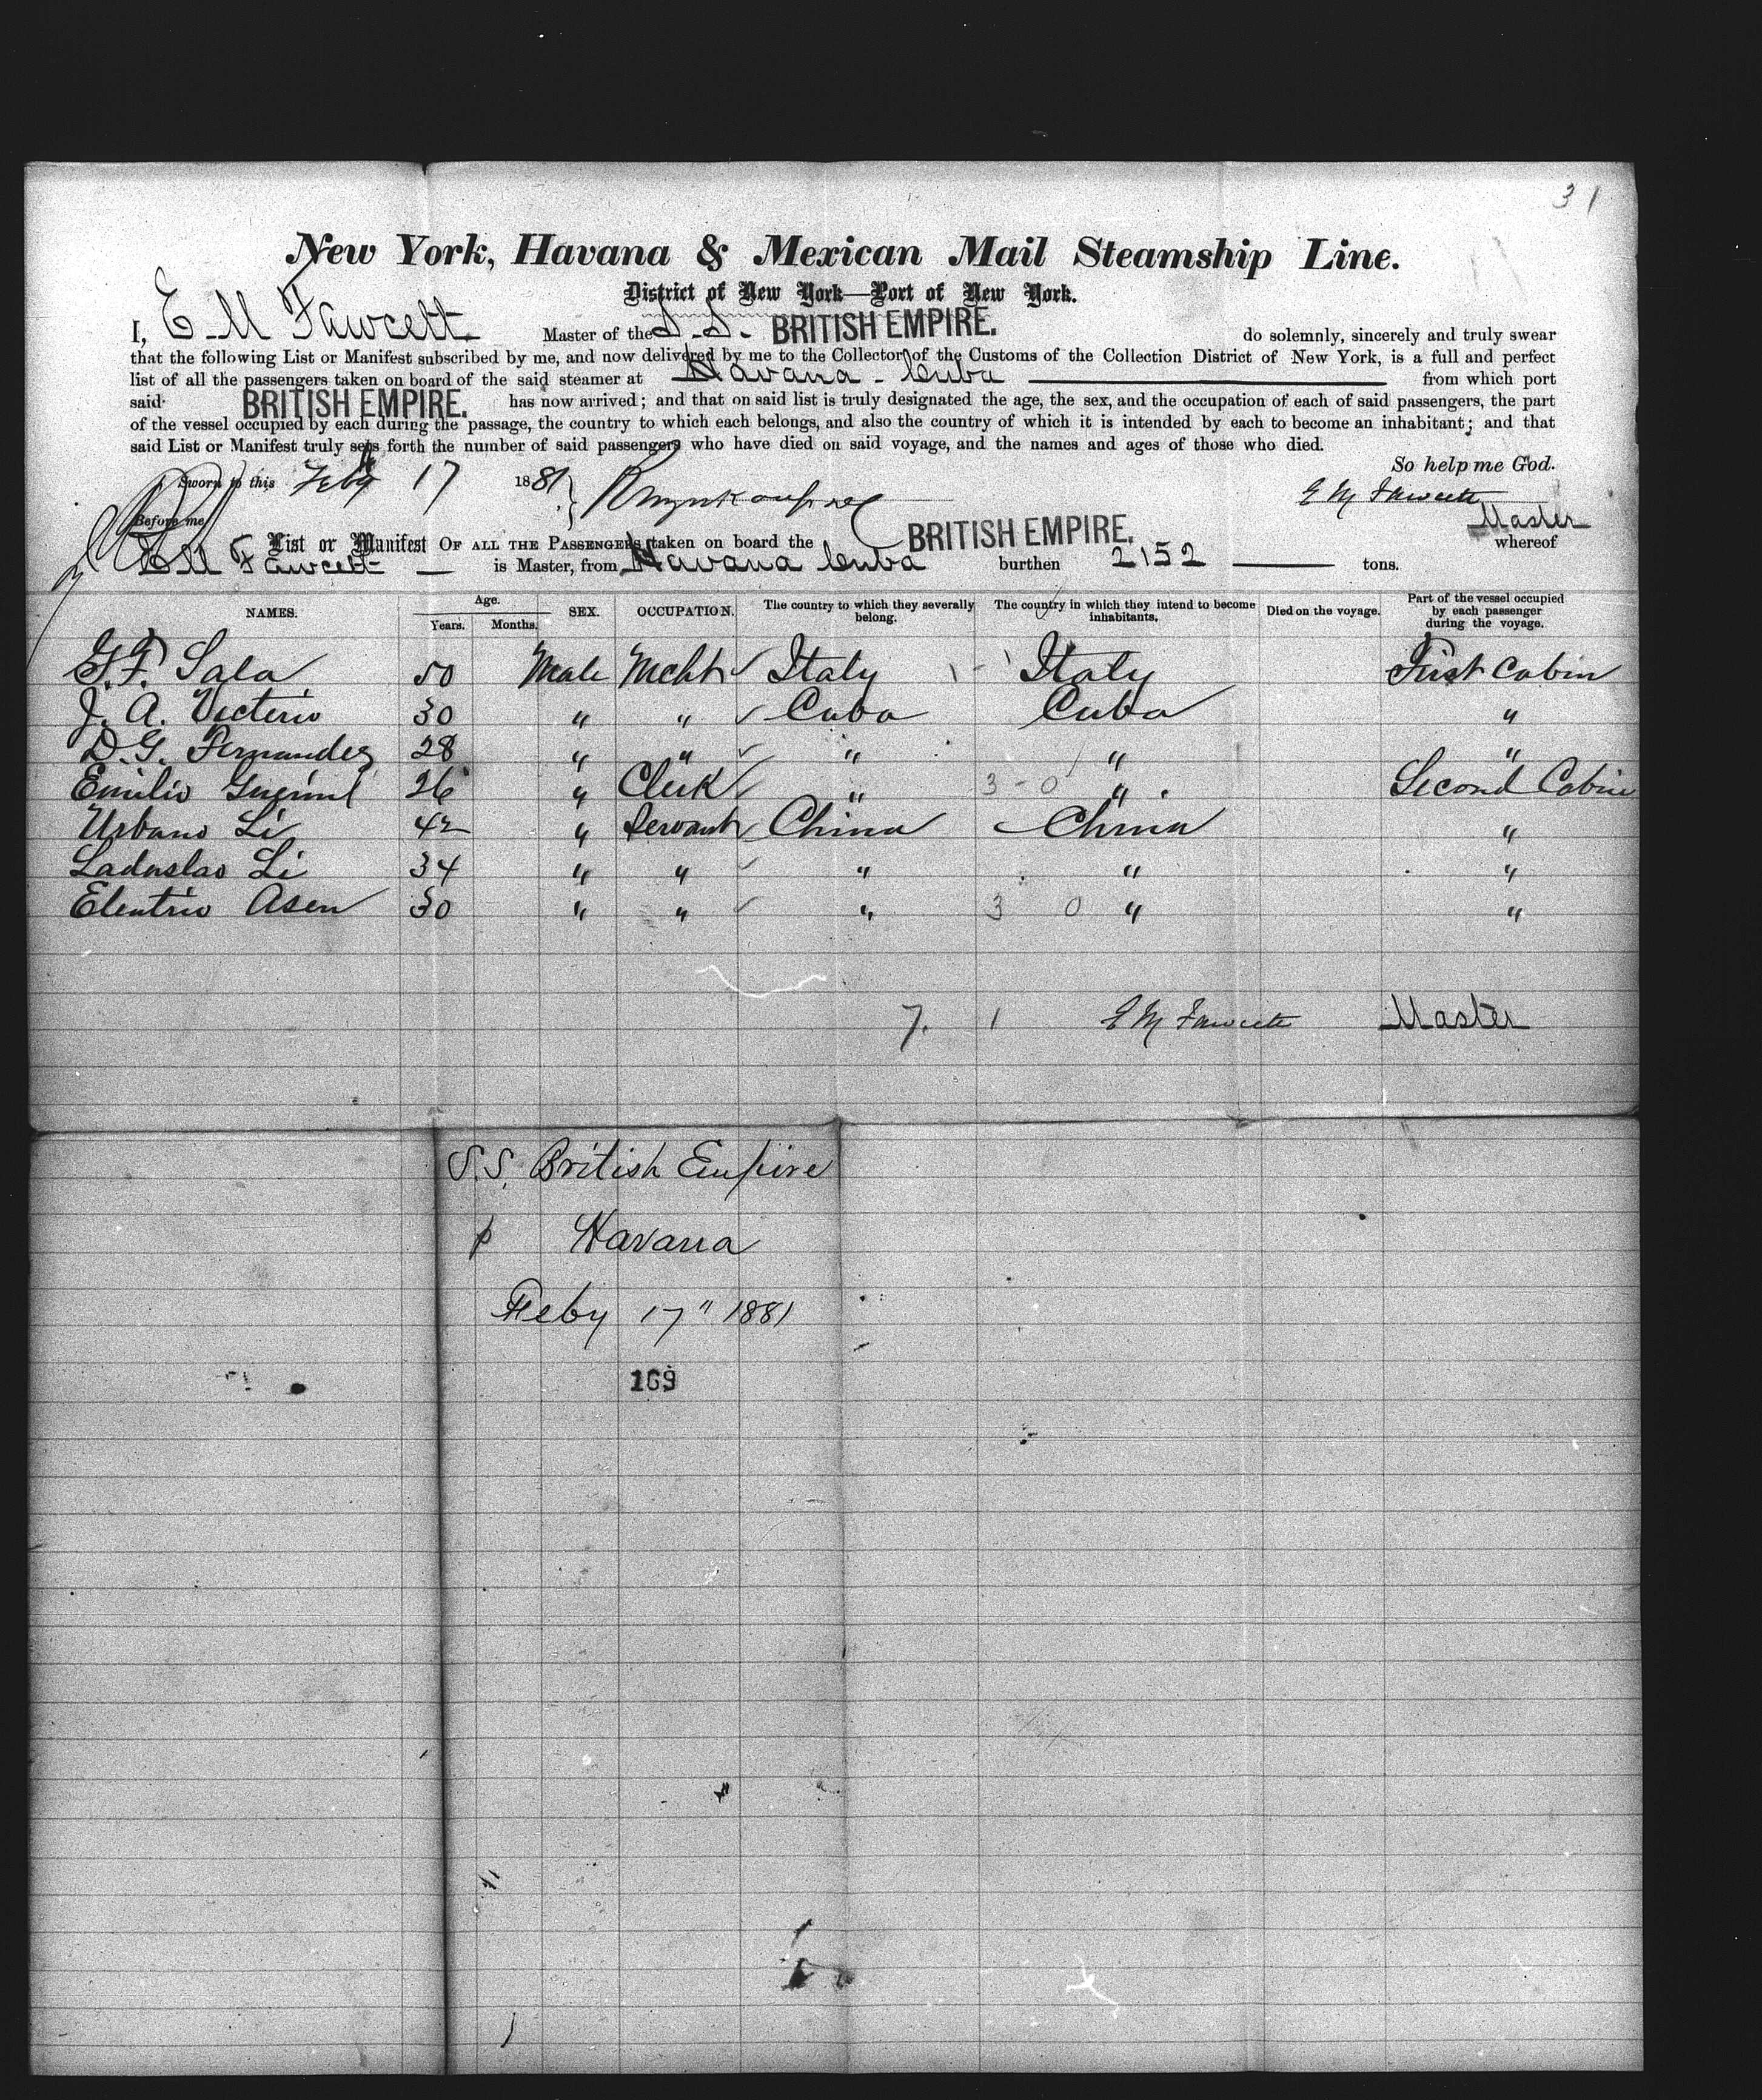 31
New York, Havana & Mexican Mail Steamship Line.
District of New York—Port of New York.
I, E M Fawcett Master of the S. S. BRITISH EMPIRE. do solemnly, sincerely and truly swear
that the following List or Manifest subscribed by me, and now delivered by me to the Collector of the Customs of the Collection District of New York, is a full and perfect
list of all the passengers taken on board of the said steamer at Havana - Cuba from which port
said BRITISH EMPIRE. has now arrived; and that on said list is truly designated the age, the sex, and the occupation of each of said passengers, the part
of the vessel occupied by each during the passage, the country to which each belongs, and also the country of which it is intended by each to become an inhabitant; and that
said List or Manifest truly sets forth the number of said passengers who have died on said voyage, and the names and ages of those who died.
So help me God.
Sworn to this Feby 17 1881 E M Fawcett
Before me Master
List or Manifest OF ALL THE PASSENGERS taken on board the BRITISH EMPIRE. whereof
E M Fawcett is Master, from Havana Cuba burthen 2152 tons.
NAMES. Age. Years. Months. SEX. OCCUPATION. The country to which they severally belong. The country in which they intend to become inhabitants. Died on the voyage. Part of the vessel occupied by each passenger during the voyage.
G. F. Sala 50 Male Mcht Italy 1 - 1 Italy First Cabin
J. A. Victerio 30 " " Cuba Cuba "
D. G. Fernandez 28 " " " " "
Emilio 26 " Clerk " 3 - 0 " Second Cabin
Urbano Li 42 " Servant China China "
Ladaslao Li 34 " " " " "
Eleutrio Asen 30 " " " 3 0 " "
7. 1 E M Fawcett Master
S.S. British Empire
p Havana
Feby 17" 1881
169